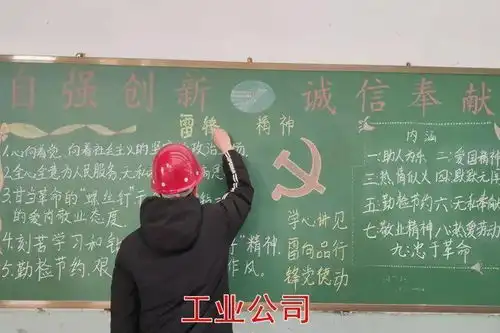 自强创新 诚信奉献
雷锋 精神
1.心向着党,向着社会主义的 政治
2.全心全意为人民服务,无私
3.甘当革命的"螺丝钉"
的爱岗敬业态度.
4.刻苦学习和 子"精神.
5.勤俭节约,艰 作风.
学心讲见
雷向品行
锋党德动
内涵
一.助人为乐、二.爱国精神
三.热情似火 四.
五.勤俭节约 六.无私奉献
七.敬业精神 八.热爱劳动
九.忠于革命
工业公司